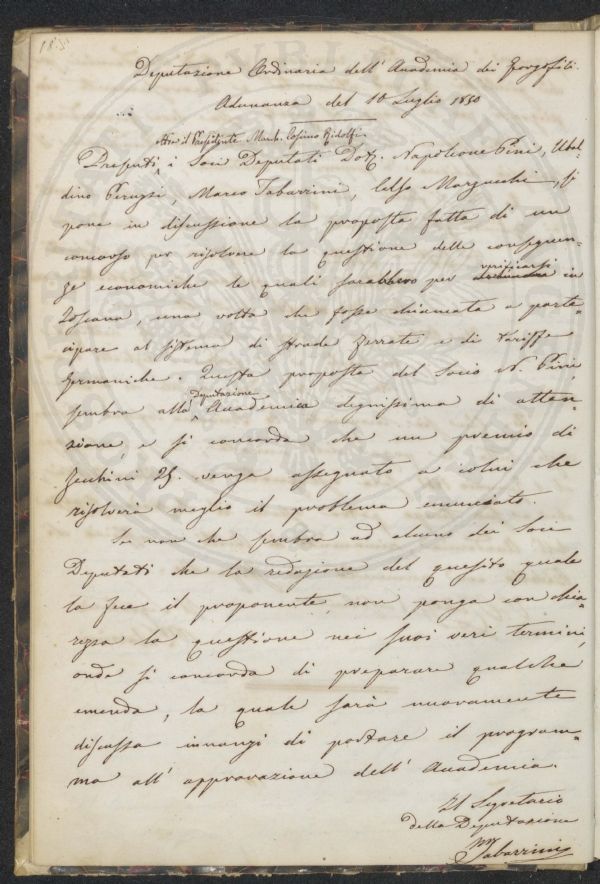 Deputazione Ordinaria dell'Accademia dei Georgofili.
Adunanza del 10 Luglio 1850
oltre il Presidente March. Cosimo Ridolfi
Presenti i Soci Deputati Dott. Napoleone Pini, Ubal-
dino Peruzzi, Marco Tabarrini, Celso Marzucchi, si
pone in discussione la proposta fatta di un
concorso per risolvere la questione delle conseguen-
ze economiche le quali sarebbero per verificarsi in
Toscana, una volta che fosse chiamata a parte-
cipare al sistema di strade ferrate e di tariffe
Germaniche. Questa proposta del Socio N. Pini
Deputazione
sembra alla Accademica degnissima di atten-
zione, e si concorda che un premio di
Zecchini 25. venga assegnato a colui che
risolverà meglio il problema enunciato.
Se non che sembra ad alcuno dei Soci
Deputati che la redazione del quesito quale
la fece il proponente, non ponga con chia-
rezza la questione nei suoi veri termini,
onde si concorda di preparare qualche
emenda, la quale sarà nuovamente
discussa innanzi di portare il program-
ma all'approvazione dell'Accademia.
Il Segretario
della Deputazione
M Tabarrini